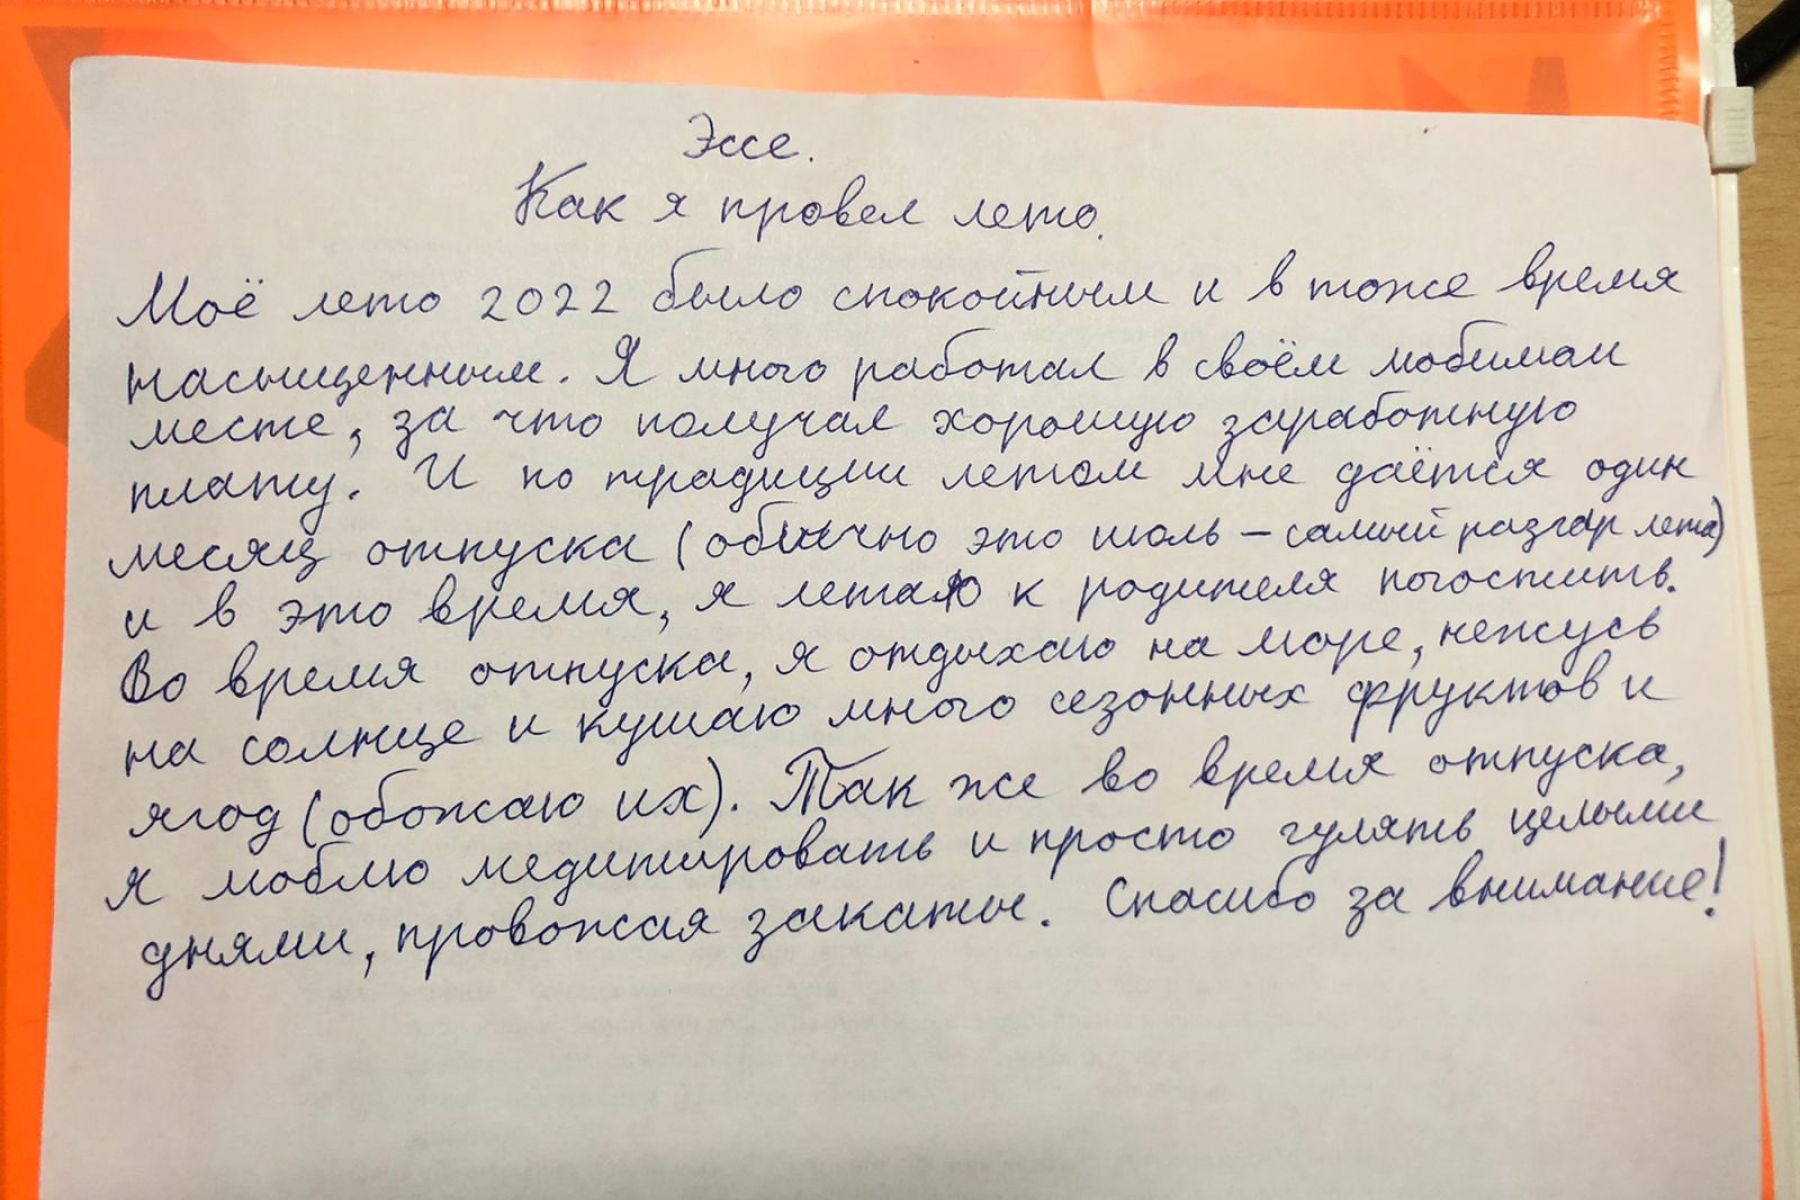 Эссе.
Как я провел лето.
Моё лето 2022 было спокойным и в тоже время
насыщенным. Я много работал в своём любимом
месте, за что получал хорошую заработную
плату. И по традиции летом мне даётся один
месяц отпуска (обычно это июль – самый разгар лета)
и в это время, я летаю к родителя погостить.
Во время отпуска, я отдыхаю на море, нежусь
на солнце и кушаю много сезонных фруктов и
ягод (обожаю их). Так же во время отпуска,
я люблю медитировать и просто гулять целыми
днями, провожая закаты. Спасибо за внимание!